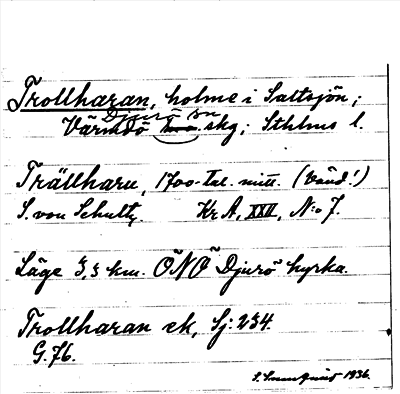 Trollharan, holme i Saltsjön;
Djurö sn
Värmdö skg; Sthlms l.
Trällharu, 1700-tal. mitt. (Vänd!)
S. von Schultz. Kr A, XXII, N:o 7.
Läge 3,3 km. ÖNÖ Djurö kyrka.
Trollharan ek, Sj: 234.
G. 76.
1936.